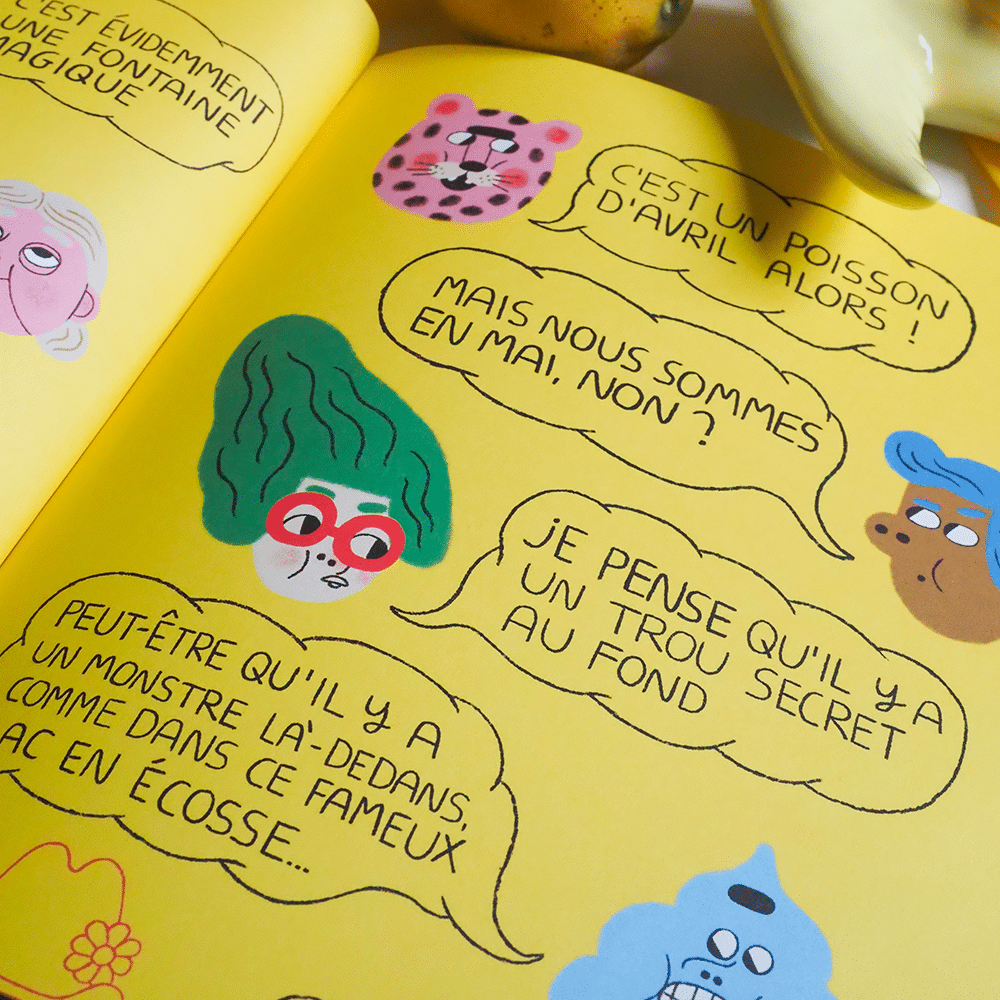 C'EST ÉVIDEMMENT
UNE FONTAINE
MAGIQUE
C'EST UN POISSON
D'AVRIL ALORS !
MAIS NOUS SOMMES
EN MAI, NON ?
JE PENSE QU'IL Y A
UN TROU SECRET
AU FOND
PEUT-ÊTRE QU'IL Y A
UN MONSTRE LÀ-DEDANS,
COMME DANS CE FAMEUX
AC EN ÉCOSSE...